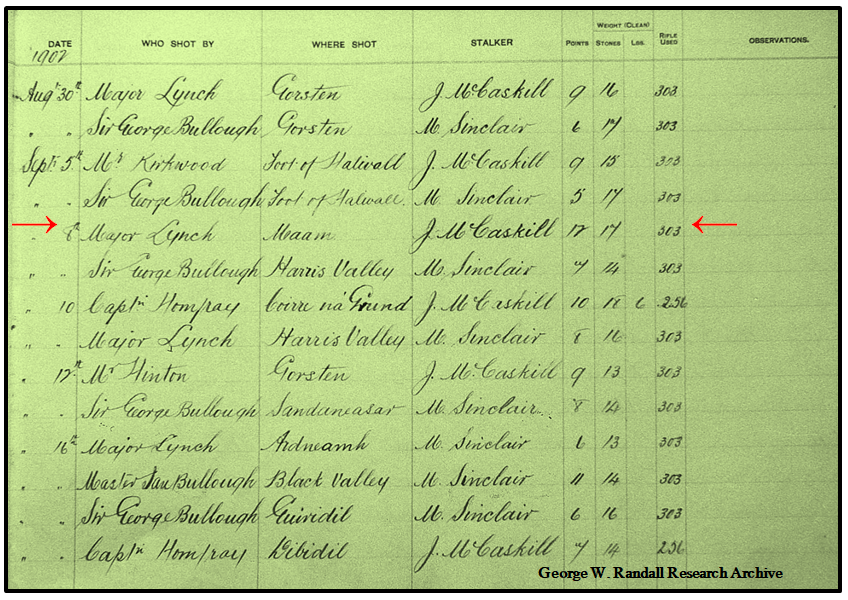 WEIGHT (CLEAN)
DATE WHO SHOT BY WHERE SHOT STALKER POINTS STONES LBS. RIFLE USED OBSERVATIONS.
1902
Augt 30th Major Lynch Gorsten J. McCaskill 9 16 303
" " Sir George Bullough Gorsten M. Sinclair 6 17 303
Sept. 5th Mr Kirkwood Foot of Halivall J. McCaskill 9 15 303
" " Sir George Bullough Foot of Halivall. M. Sinclair 5 17 303
" 8th Major Lynch Maam J. McCaskill 12 17 303
" " Sir George Bullough Harris Valley M. Sinclair 7 14 303
" 10 Captn Homfray Coirre na Grund J. McCaskill 10 18 6 .256
" " Major Lynch Harris Valley M. Sinclair 8 16 303
" 12th Mr Hinton Gorsten J. McCaskill 9 13 303
" " Sir George Bullough Sandaneasar M. Sinclair. 8 14 303
" 16th Major Lynch Ardneamh M. Sinclair 6 13 303
" " Master Ian Bullough Black Valley M. Sinclair 11 14 303
" " Sir George Bullough Guiridil M. Sinclair 6 16 303
" " Captn Homfray Dibidil J. McCaskill 7 14 256
George W. Randall Research Archive